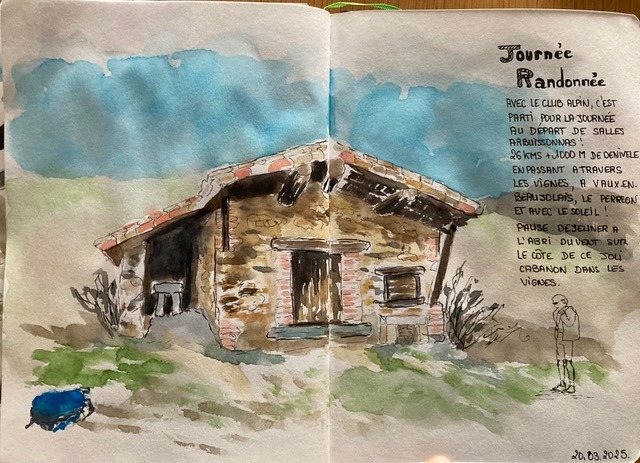 Journée
Randonnée
AVEC LE CLUB ALPIN, C'EST
PARTI POUR LA JOURNÉE
AU DÉPART DE SALLES
ARBUISSONNAS !
26 KMS + 1000 M DE DENIVELÉ
EN PASSANT A TRAVERS
LES VIGNES, A VAUX.EN.
BEAUJOLAIS, LE PERREON
ET AVEC LE SOLEIL !
PAUSE DEJEUNER A
L'ABRI DU VENT SUR
LE CÔTE DE CE JOLI
CABANON DANS LES
VIGNES.
20.03.2025.